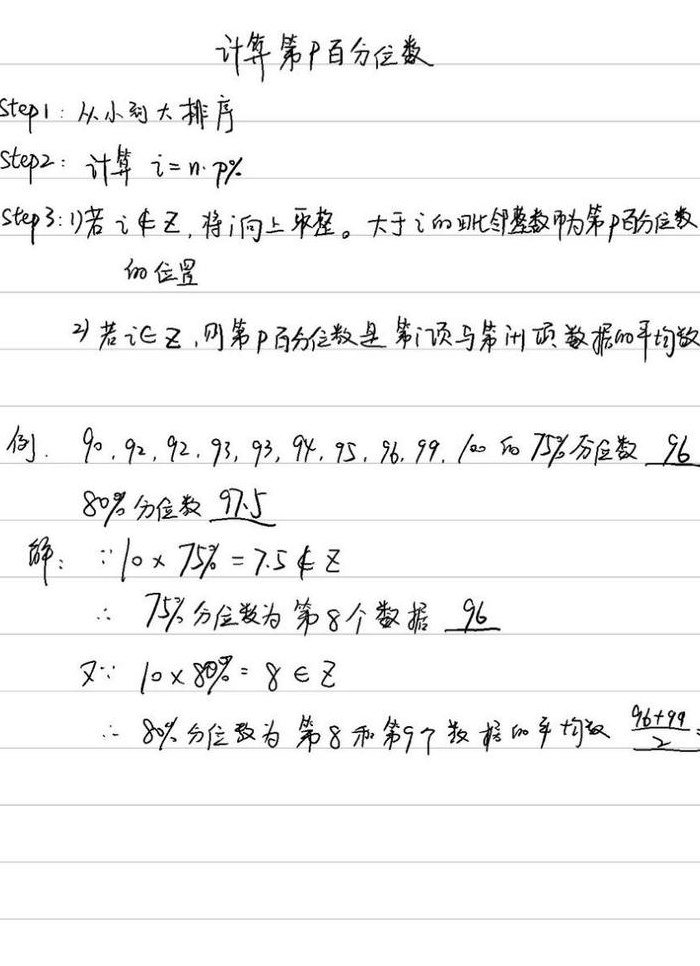 计算第P百分位数
Step1：从小到大排序
Step2：计算 i=n·p%
Step3：1)若 i∉Z，将i向上取整。大于i的毗邻整数即为第p百分位数
的位置
2) 若i∈Z，则第p百分位数是 第i项与第i+1项数据的平均数
例. 90, 92, 92, 93, 93, 94, 95, 96, 99, 100 的 75%分位数 96
80%分位数 97.5
解：∵10×75%=7.5∉Z
∴ 75%分位数为第8个数据 96
又∵ 10×80%=8∈Z
∴ 80%分位数为 第8和第9个数据的平均数 (96+99)/2=